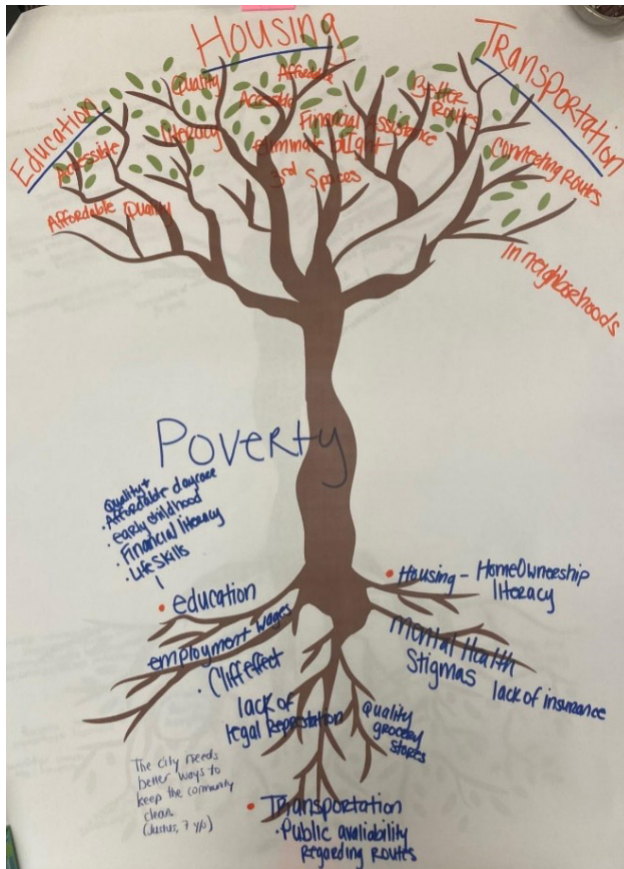 Housing
Transportation
Education
Quality
Literacy
Accessible
Affordable Quality
Affordable
Accessible
Financial Assistance
eliminate blight
3rd Spaces
Better
Routes
Connecting Routes
In neighborhoods
Poverty
Quality +
• Affordable daycare
• early childhood
• Financial literacy
• Life Skills
• education
employment wages
• Cliff effect
lack of
legal Reprstation
Quality
grocery
stores
• Housing - HomeOwnership
literacy
Mental Health
Stigmas
lack of insurance
The city needs
better ways to
keep the community
clean.
(Justus, 7 y/o)
• Transportation
• Public avaliability
regarding routes